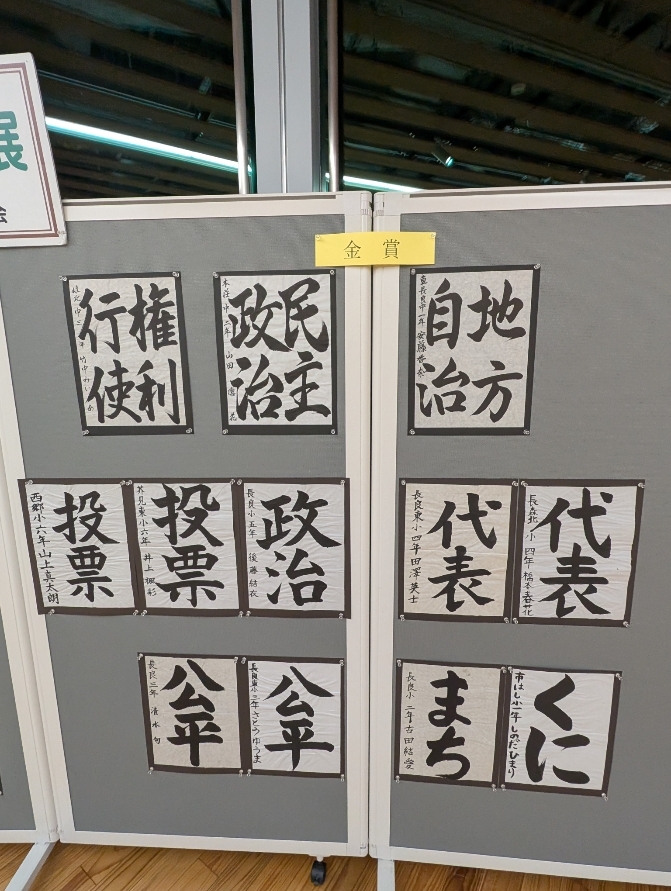 展
会
金賞
地方
自治
民主
政治
本荘中二年 山田
権利
行使
代表
長森北小 四年 橋本春花
代表
長良東小 四年 田澤英士
政治
長良小五年 後藤結衣
投票
芥見東小六年 井上
投票
西郷小六年 山上真太朗
くに
市はし小一年 しのだひまり
まち
長良小 二年 古田結愛
公平
長良東小三年 さとうゆうま
公平
長良三年 清水